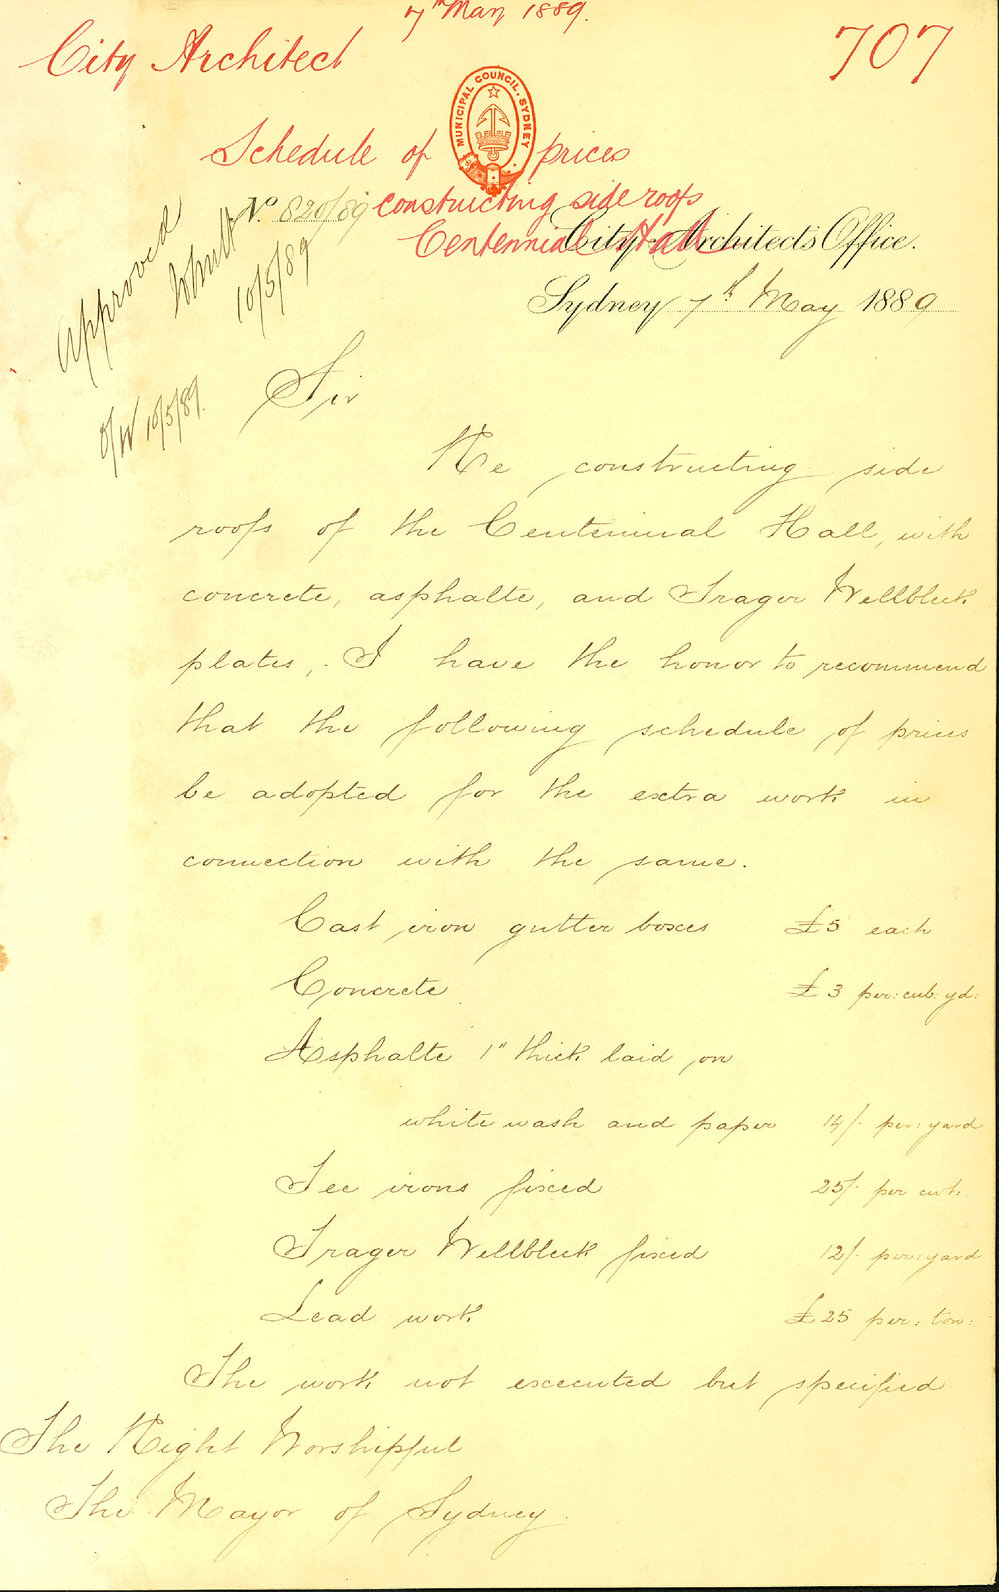 7th May 1889.
City Architect
707
MUNICIPAL COUNCIL. SYDNEY
Schedule of prices
No. 820/89 constructing side roofs
Centennial Hall
City Architects Office.
Sydney 7th May 1889
Approved
10/5/89
10/5/89.
Sir
Re constructing side
roofs of the Centennial Hall, with
concrete, asphalte, and Trager Wellbleck
plates, I have the honor to recommend
that the following schedule of prices
be adopted for the extra work in
connection with the same.
Cast iron gutter boxes £5 each
Concrete £3 per: cub: yd:
Asphalte 1" thick laid on
white wash and paper 14/- per: yard
Tee irons fixed 25/- per cwt:
Trager Wellbleck fixed 12/- per: yard
Lead work £25 per: ton:
The work not executed but specified
The Right Worshipful
The Mayor of Sydney.